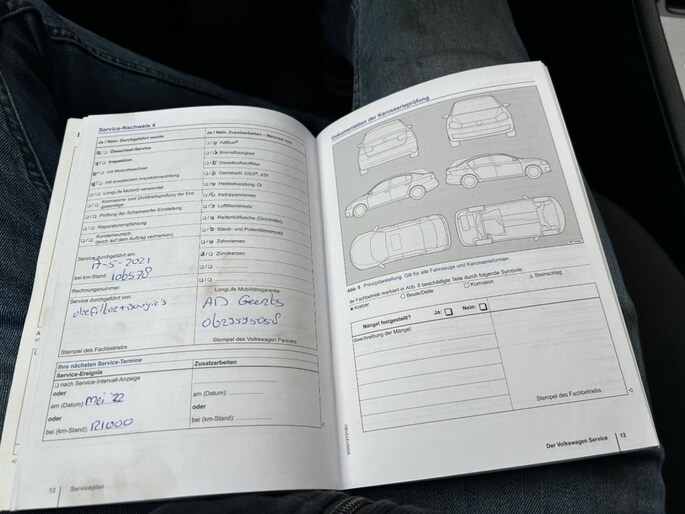 Service-Nachweis 4
Ja / Nein Durchgeführt wurde:
Ölwechsel-Service
Inspektion
mit Motorölwechsel
mit erweitertem Inspektionsumfang
LongLife Motoröl verwendet
Korrosions- und Dichtheitsprüfung der Erdgasanlage
Prüfung der Scheinwerfer-Einstellung
Reparaturempfehlung
Kundenwunsch
(auch auf dem Auftrag vermerken)
Service durchgeführt am:
17-5-2021
bei km-Stand: 106578
Rechnungsnummer:
Service durchgeführt von:
Stempel des Fachbetriebs
Ja / Nein Zusatzarbeiten - Wechsel von:
AdBlue®
Bremsflüssigkeit
Dieselkraftstofffilter
Getriebeöl DSG®, ATF
Haldexkupplung: Öl
Keilrippenriemen
Luftfiltereinsatz
Reifenfüllflasche (Dichtmittel)
Staub- und Pollenfiltereinsatz
Zahnriemen
Zündkerzen
LongLife Mobilitätsgarantie
AD Geerts
Stempel des Volkswagen Partners
Ihre nächsten Service-Termine
Service-Ereignis
nach Service-Intervall-Anzeige
oder
am (Datum): Mei '22
oder
bei (km-Stand): 121000
Zusatzarbeiten
am (Datum):
oder
bei (km-Stand):
12 | Serviceplan
Dokumentation der Karosserieprüfung
Abb. 6 Prinzipdarstellung: Gilt für alle Fahrzeuge und Karosserieformen.
Ihr Fachbetrieb markiert in Abb. 6 beschädigte Teile durch folgende Symbole:
Kratzer Beule/Delle Korrosion Steinschlag
Mängel festgestellt? Ja: Nein:
Beschreibung der Mängel:
Stempel des Fachbetriebs
Der Volkswagen Service | 13